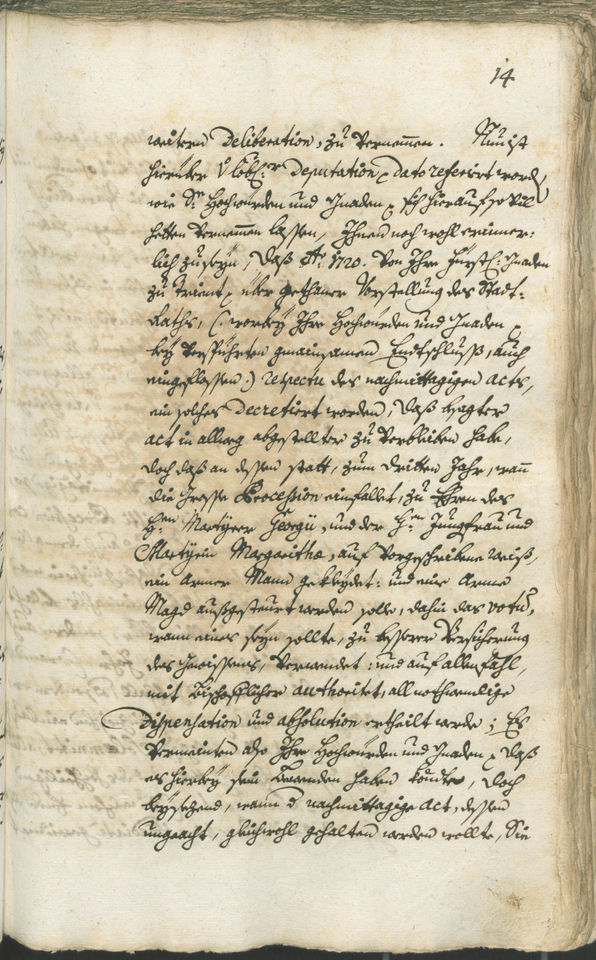 14
weitern Deliberation, zu vernemmen. Nun ist
hierüber V. löbl:r Deputation dato referirt word
wie Sr Hochwürden und Gnaden sich hierauf so vil
hetten vernemmen lassen, Ihnen noch wohl erinner:
lich zu seyn, daß Ao: 1720. von Ihro Fürstl: Gnaden
zu Trient über gethaner Vorstellung des Statt-
Raths, (: worbey Ihro Hochwürden und Gnaden
bey verspührten gmainsamen Endtschluß, auch
eingeflossen :) respectu des nachmittagigen acts,
ein solches Decretiert worden, daß besagter
act in allweg abgestellter zu verbleiben habe,
doch daß an dessen statt, zum dritten Jahr, wann
die grosse Procession einfallet, zu Ehren des
H:en Martyrer Georgii, und der H:en Jungfrau und
Martyrin Margarithæ, auf vorgeschribene weiß,
ein Armer Mann gekleydet: und eine Arme
Magd außgesteurt werden solle, dahin das votu,
wann eines seyn sollte, zu besserer Versicherung
des Gewissens, verwendet: und auf allen fahl,
mit Bischofflicher authoritet, all nothwendige
Dispensation und absolution ertheilt werde; Es
vermeinten also Ihro Hochwürden und Gnaden daß
es hierbey sein bewenden haben köndte, doch
beysezend, wann d nachmittagige Act, dessen
ungeacht, gleichwohl gehalten werden wollte, Sie